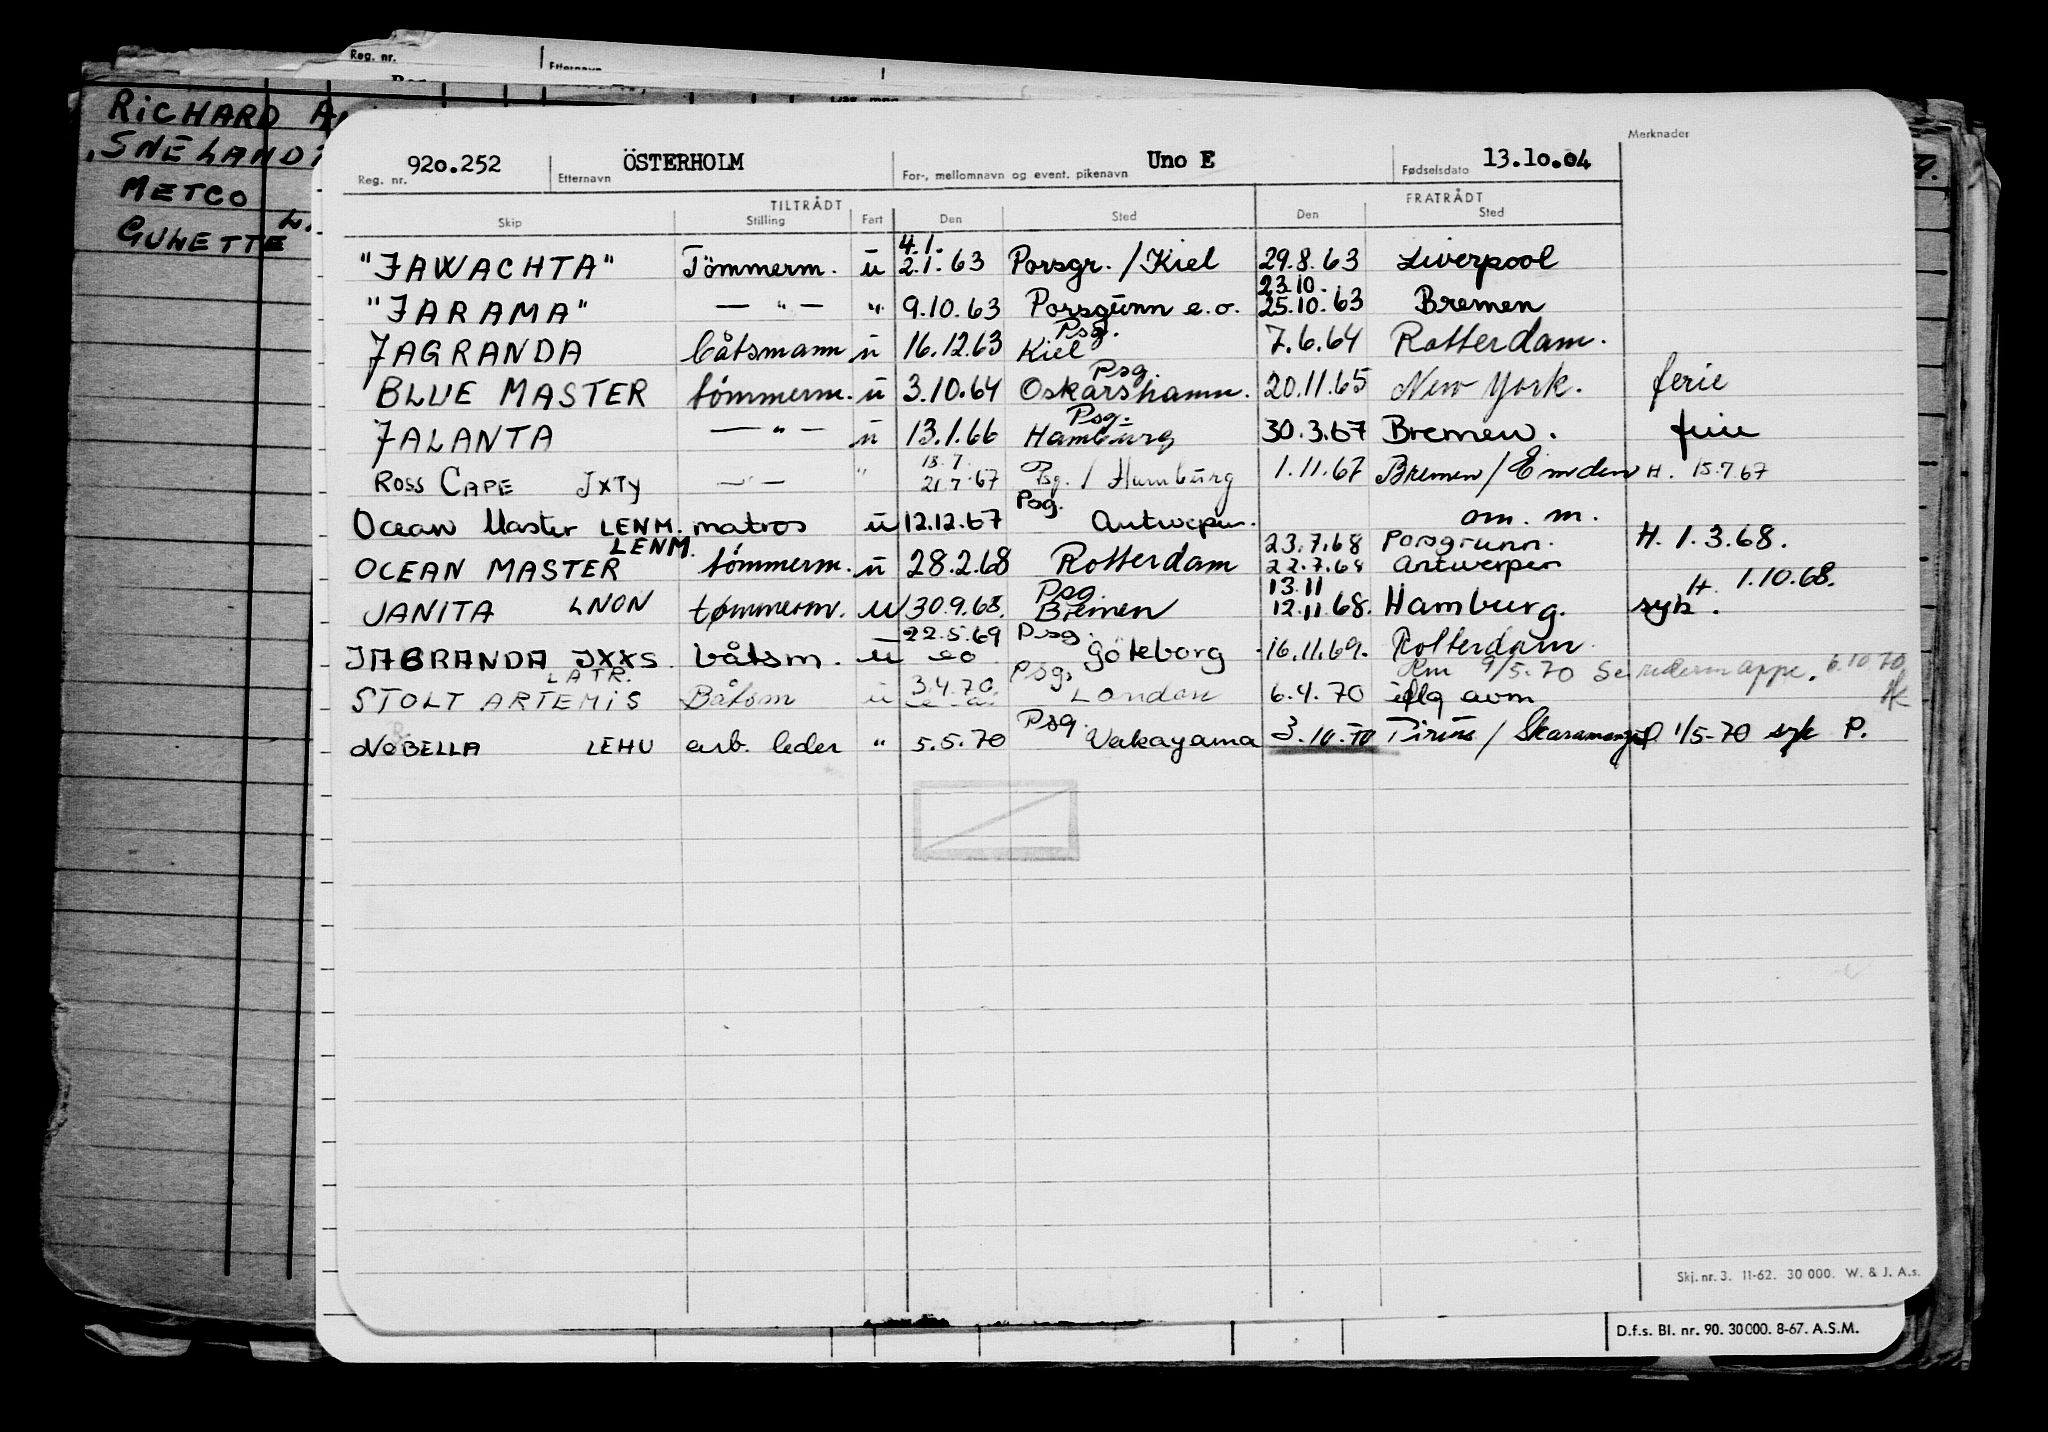 Reg. nr. Etternavn
RICHARD
SNELAND
METCO
GULETTE L.
Merknader
920.252 ÖSTERHOLM Uno E 13.10.04
Reg. nr. Etternavn For-, mellomnavn og event. pikenavn Fødselsdato
TILTRÅDT FRATRÅDT
Skip Stilling Fart Den Sted Den Sted
4.1.
"JAWACHTA" Tömmerm. u 2.1.63 Porsgr. / Kiel 29.8.63 Liverpool
23.10.
"JARAMA" — " — " 9.10.63 Porsgunn e.o. 25.10.63 Bremen
Psg.
JAGRANDA båtsmann u 16.12.63 Kiel 7.6.64 Rotterdam.
Psg.
BLUE MASTER tömmerm. u 3.10.64 Oskarshamn. 20.11.65 New York. ferie
Psg.
JALANTA — " — u 13.1.66 Hamburg 30.3.67 Bremen. ferie
18.7.
ROSS CAPE JXTY — " — " 21.7.67 Psg. / Hamburg 1.11.67 Bremen / Emden H. 15.7.67
Psg.
Ocean Master LENM. matros u 12.12.67 Antwerpen. om. m.
LENM. 23.7.68 Porsgrunn. H. 1.3.68.
OCEAN MASTER tömmerm. u 28.2.68 Rotterdam 22.7.68 Antwerpen
Psg. 13.11 H. 1.10.68.
JANITA LNON tømmerm. u 30.9.68. Bremen 12.11.68. Hamburg. syk.
22.5.69 Psg.
JABRANDA JXXS. båtsm. u eo Göteborg 16.11.69. Rotterdam.
LATR. 3.4.70 Psg. Rm 9/5.70 Sendermappe. 6.10.70
STOLT ARTEMIS Båtsm u London 6.4.70 iflg avm
Psg.
NOBELLA LEHU arb. leder " 5.5.70 Vakayama 3.10.70 Pirius / Skaramanga 1/5-70 syk P.
Skj. nr. 3. 11-62. 30 000. W. & J. A.s.
D.f.s. Bl. nr. 90. 30000. 8-67. A.S.M.